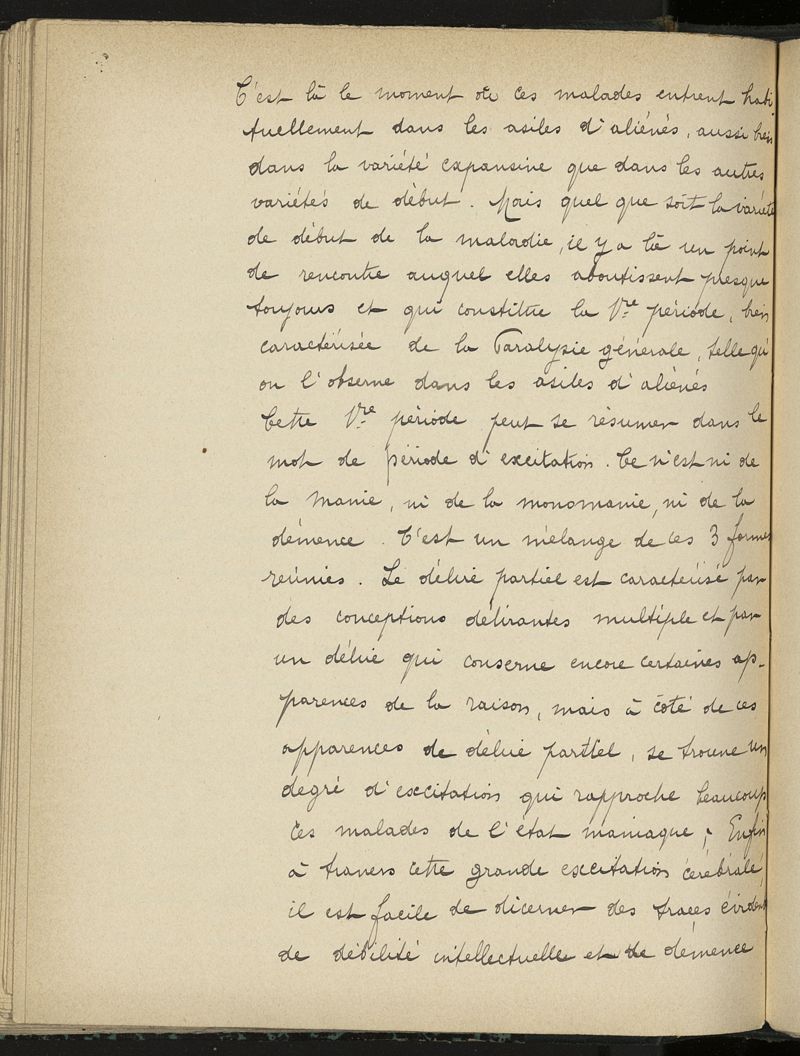 C'est là le moment où ces malades entrent habi
tuellement dans les asiles d'aliénés, aussi bien
dans la variété expansive que dans les autres
variétés de début. Mais quel que soit la variété
de début de la maladie, il y a là un point
de rencontre auquel elles aboutissent presque
toujours et qui constitue la 1re période, bien
caractérisée de la Paralysie générale, telle qu'
on l'observe dans les asiles d'aliénés
Cette 1re période peut se résumer dans le
mot de période d'excitation. Ce n'est ni de
la manie, ni de la monomanie, ni de la
démence. C'est un mélange de ces 3 formes
réunies. Le délire partiel est caractérisé par
des conceptions délirantes multiple et par
un délire qui conserve encore certaines ap-
parences de la raison, mais à côté de ces
apparences de délire partiel, se trouve un
degré d'excitation qui rapproche beaucoup
ces malades de l'état maniaque; Enfin
à travers cette grande excitation cérébrale,
il est facile de dicerner des traces évidents
de débilité intellectuelle et de démence